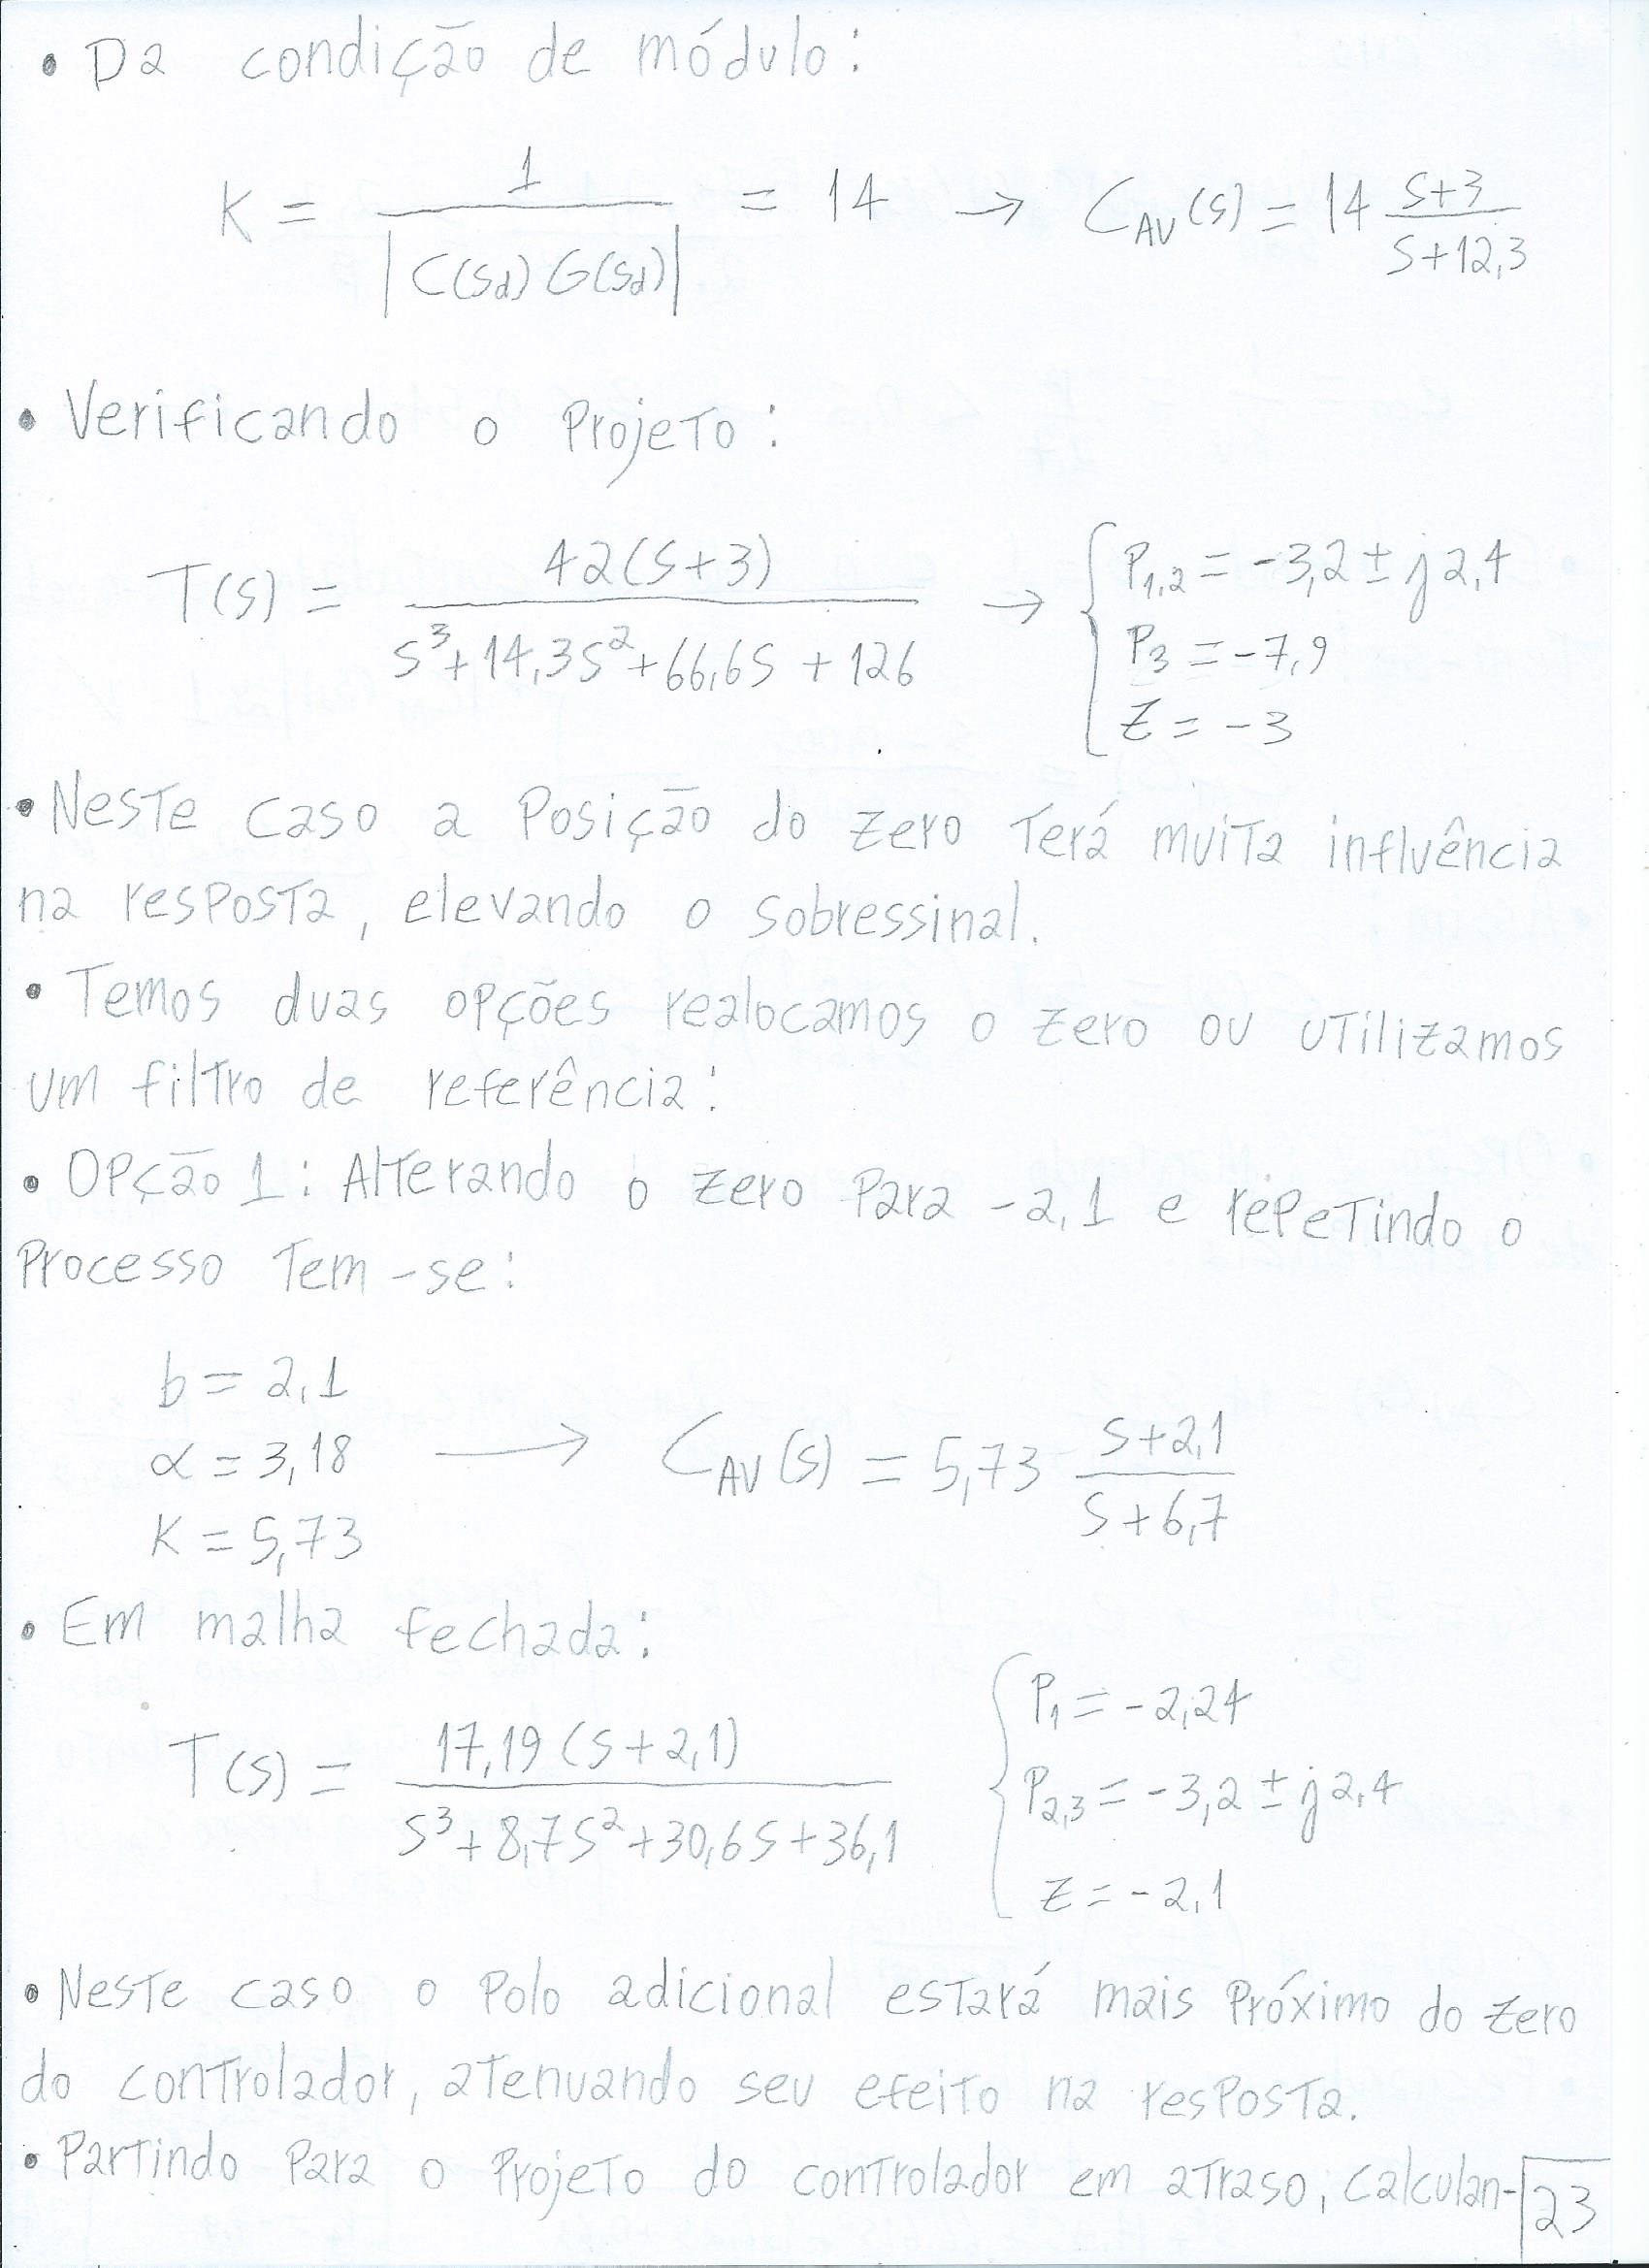 • Da condição de módulo:
K = 1 / |C(sd) G(sd)| = 14 → C_AV(s) = 14 (s+3)/(s+12,3)
• Verificando o projeto:
T(s) = 42(s+3) / (s³+14,3s²+66,6s+126) → { P1,2 = -3,2 ± j2,4
P3 = -7,9
Z = -3
• Neste caso a posição do zero terá muita influência
na resposta, elevando o sobressinal.
• Temos duas opções realocamos o zero ou utilizamos
um filtro de referência:
• Opção 1: Alterando o zero para -2,1 e repetindo o
processo tem-se:
b = 2,1
α = 3,18 → C_AV(s) = 5,73 (s+2,1)/(s+6,7)
K = 5,73
• Em malha fechada:
T(s) = 17,19(s+2,1) / (s³+8,7s²+30,6s+36,1) { P1 = -2,24
P2,3 = -3,2 ± j2,4
z = -2,1
• Neste caso o polo adicional estará mais próximo do zero
do controlador, atenuando seu efeito na resposta.
• Partindo para o projeto do controlador em atraso, calculan-
23